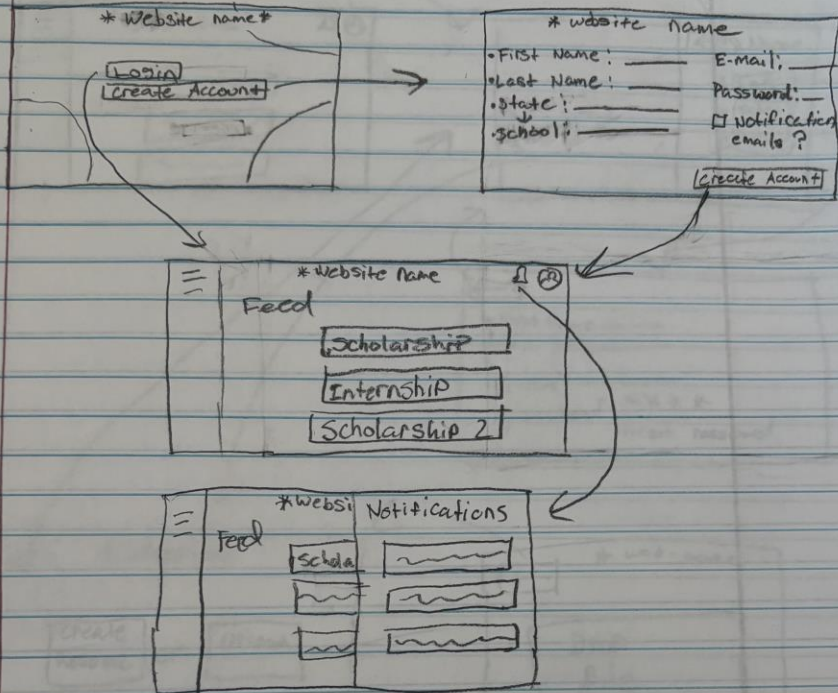 * Website name *
Login
Create Account
* website name
• First Name:
• Last Name:
• State:
• School:
E-mail:
Password:
Notification
emails?
Create Account
* Website Name
Feed
Scholarship
Internship
Scholarship 2
* Websi
Notifications
Feed
Schola